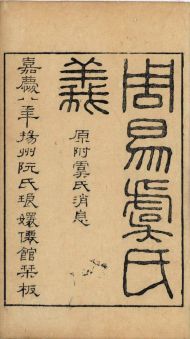 周易虞氏
義
原附虞氏消息
嘉慶八年揚州阮氏琅嬛僊館栞板